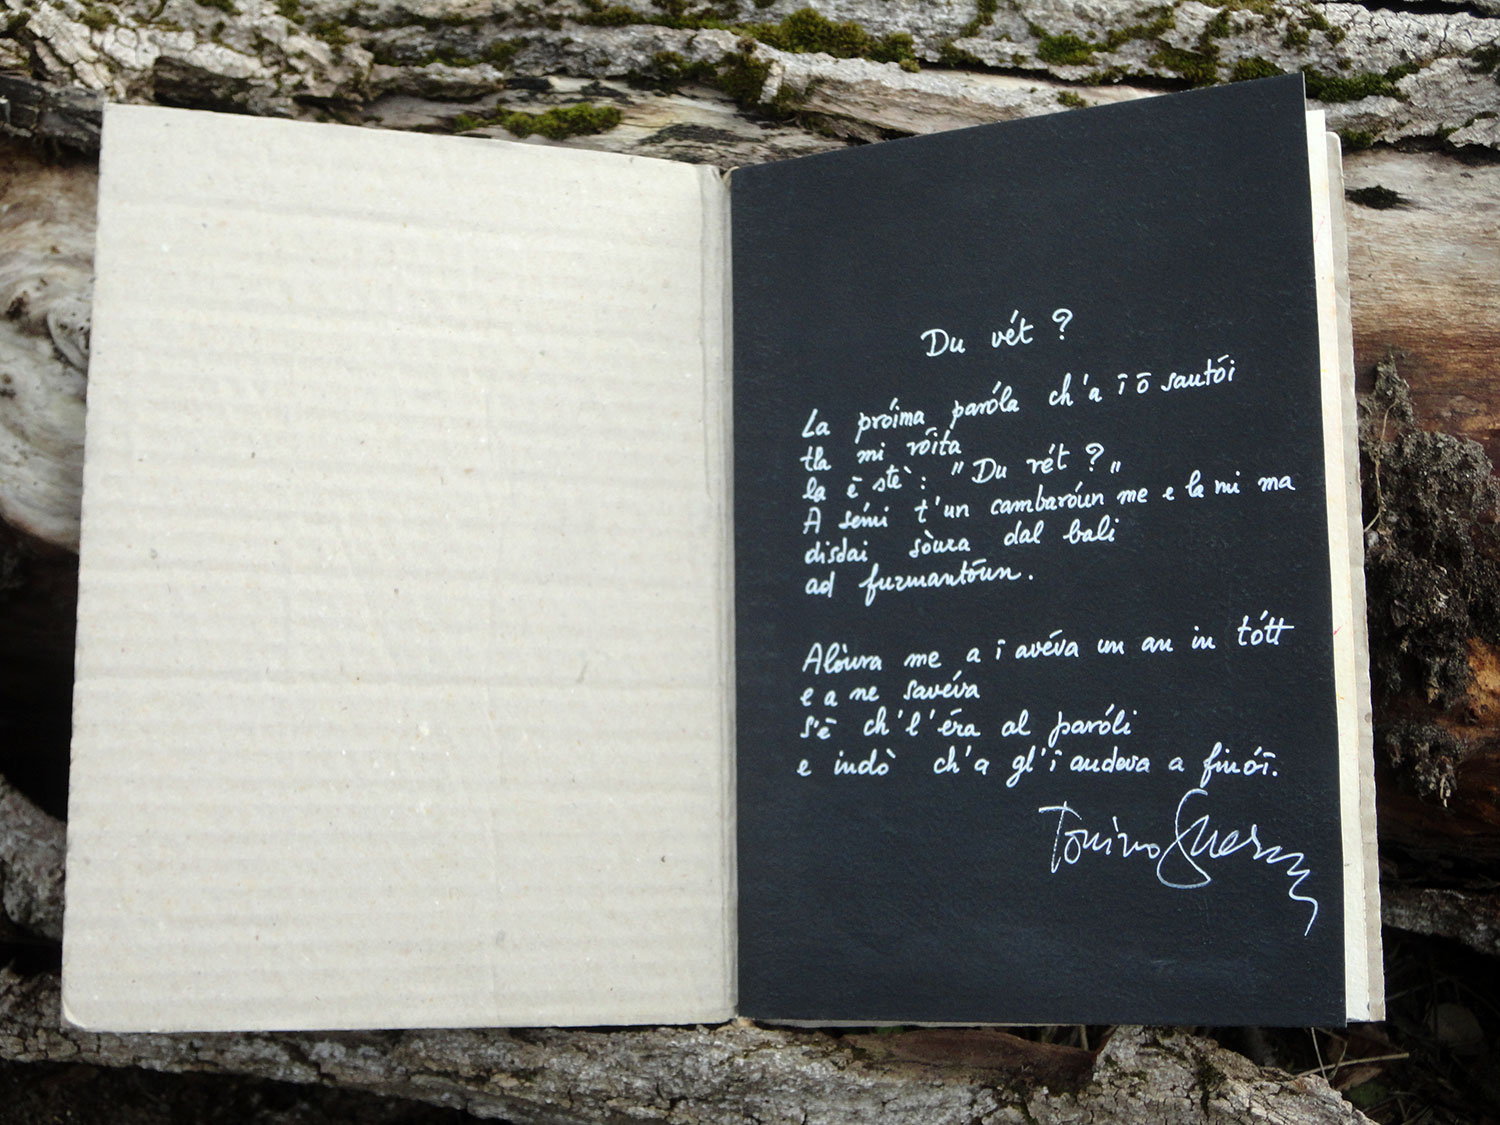 Du vét ?
La próima paróla ch'a î ō santói
tla mi róita
la ē stè : "Du vét ?„
A sémi t'un cambaróun me e la mi ma
disdai sòura dal bali
ad furmantōun.
Alòura me a î avéva un an in tótt
e a ne savéva
s'ē ch'l'éra al paróli
e indò ch'a gl'î andeva a finóī.
Tonino Guerra